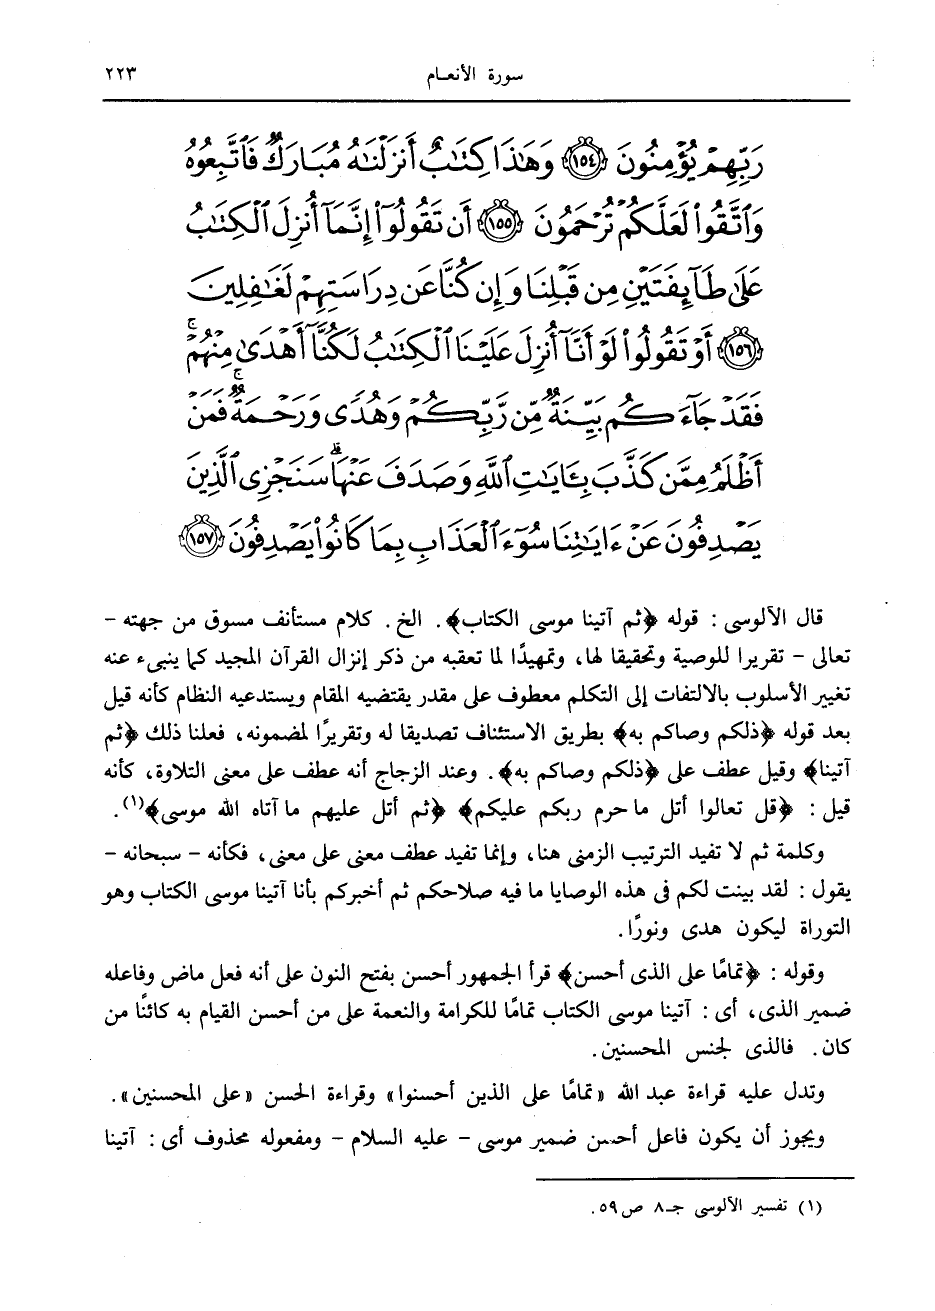 سورة الأنعـام ٢٢٣
رَبِّهِمْ يُؤْمِنُونَ ١٥٤ وَهَٰذَا كِتَٰبٌ أَنزَلْنَٰهُ مُبَارَكٌ فَٱتَّبِعُوهُ
وَٱتَّقُوا۟ لَعَلَّكُمْ تُرْحَمُونَ ١٥٥ أَن تَقُولُوٓا۟ إِنَّمَآ أُنزِلَ ٱلْكِتَٰبُ
عَلَىٰ طَآئِفَتَيْنِ مِن قَبْلِنَا وَإِن كُنَّا عَن دِرَاسَتِهِمْ لَغَٰفِلِينَ
١٥٦ أَوْ تَقُولُوا۟ لَوْ أَنَّآ أُنزِلَ عَلَيْنَا ٱلْكِتَٰبُ لَكُنَّآ أَهْدَىٰ مِنْهُمْ ۚ
فَقَدْ جَآءَكُم بَيِّنَةٌ مِّن رَّبِّكُمْ وَهُدًى وَرَحْمَةٌ ۚ فَمَنْ
أَظْلَمُ مِمَّن كَذَّبَ بِـَٔايَٰتِ ٱللَّهِ وَصَدَفَ عَنْهَا ۗ سَنَجْزِى ٱلَّذِينَ
يَصْدِفُونَ عَنْ ءَايَٰتِنَا سُوٓءَ ٱلْعَذَابِ بِمَا كَانُوا۟ يَصْدِفُونَ ١٥٧
قال الآلوسى : قوله ﴿ثم آتينا موسى الكتاب﴾. الخ. كلام مستأنف مسوق من جهته –
تعالى – تقريرا للوصية وتحقيقا لها، وتمهيدًا لما تعقبه من ذكر إنزال القرآن المجيد كما ينبىء عنه
تغيير الأسلوب بالالتفات إلى التكلم معطوف على مقدر يقتضيه المقام ويستدعيه النظام كأنه قيل
بعد قوله ﴿ذلكم وصاكم به﴾ بطريق الاستئناف تصديقا له وتقريرًا لمضمونه، فعلنا ذلك ﴿ثم
آتينا﴾ وقيل عطف على ﴿ذلكم وصاكم به﴾. وعند الزجاج أنه عطف على معنى التلاوة، كأنه
قيل : ﴿قل تعالوا أتل ما حرم ربكم عليكم﴾ ﴿ثم أتل عليهم ما آتاه الله موسى﴾(١).
وكلمة ثم لا تفيد الترتيب الزمنى هنا، وإنما تفيد عطف معنى على معنى، فكأنه – سبحانه –
يقول : لقد بينت لكم فى هذه الوصايا ما فيه صلاحكم ثم أخبركم بأنا آتينا موسى الكتاب وهو
التوراة ليكون هدى ونورًا.
وقوله : ﴿تمامًا على الذى أحسن﴾ قرأ الجمهور أحسن بفتح النون على أنه فعل ماض وفاعله
ضمير الذى، أى : آتينا موسى الكتاب تمامًا للكرامة والنعمة على من أحسن القيام به كائنًا من
كان. فالذى لجنس المحسنين.
وتدل عليه قراءة عبد الله «تمامًا على الذين أحسنوا» وقراءة الحسن «على المحسنين».
ويجوز أن يكون فاعل أحسن ضمير موسى – عليه السلام – ومفعوله محذوف أى : آتينا
(١) تفسير الآلوسى جـ٨ ص٥٩.